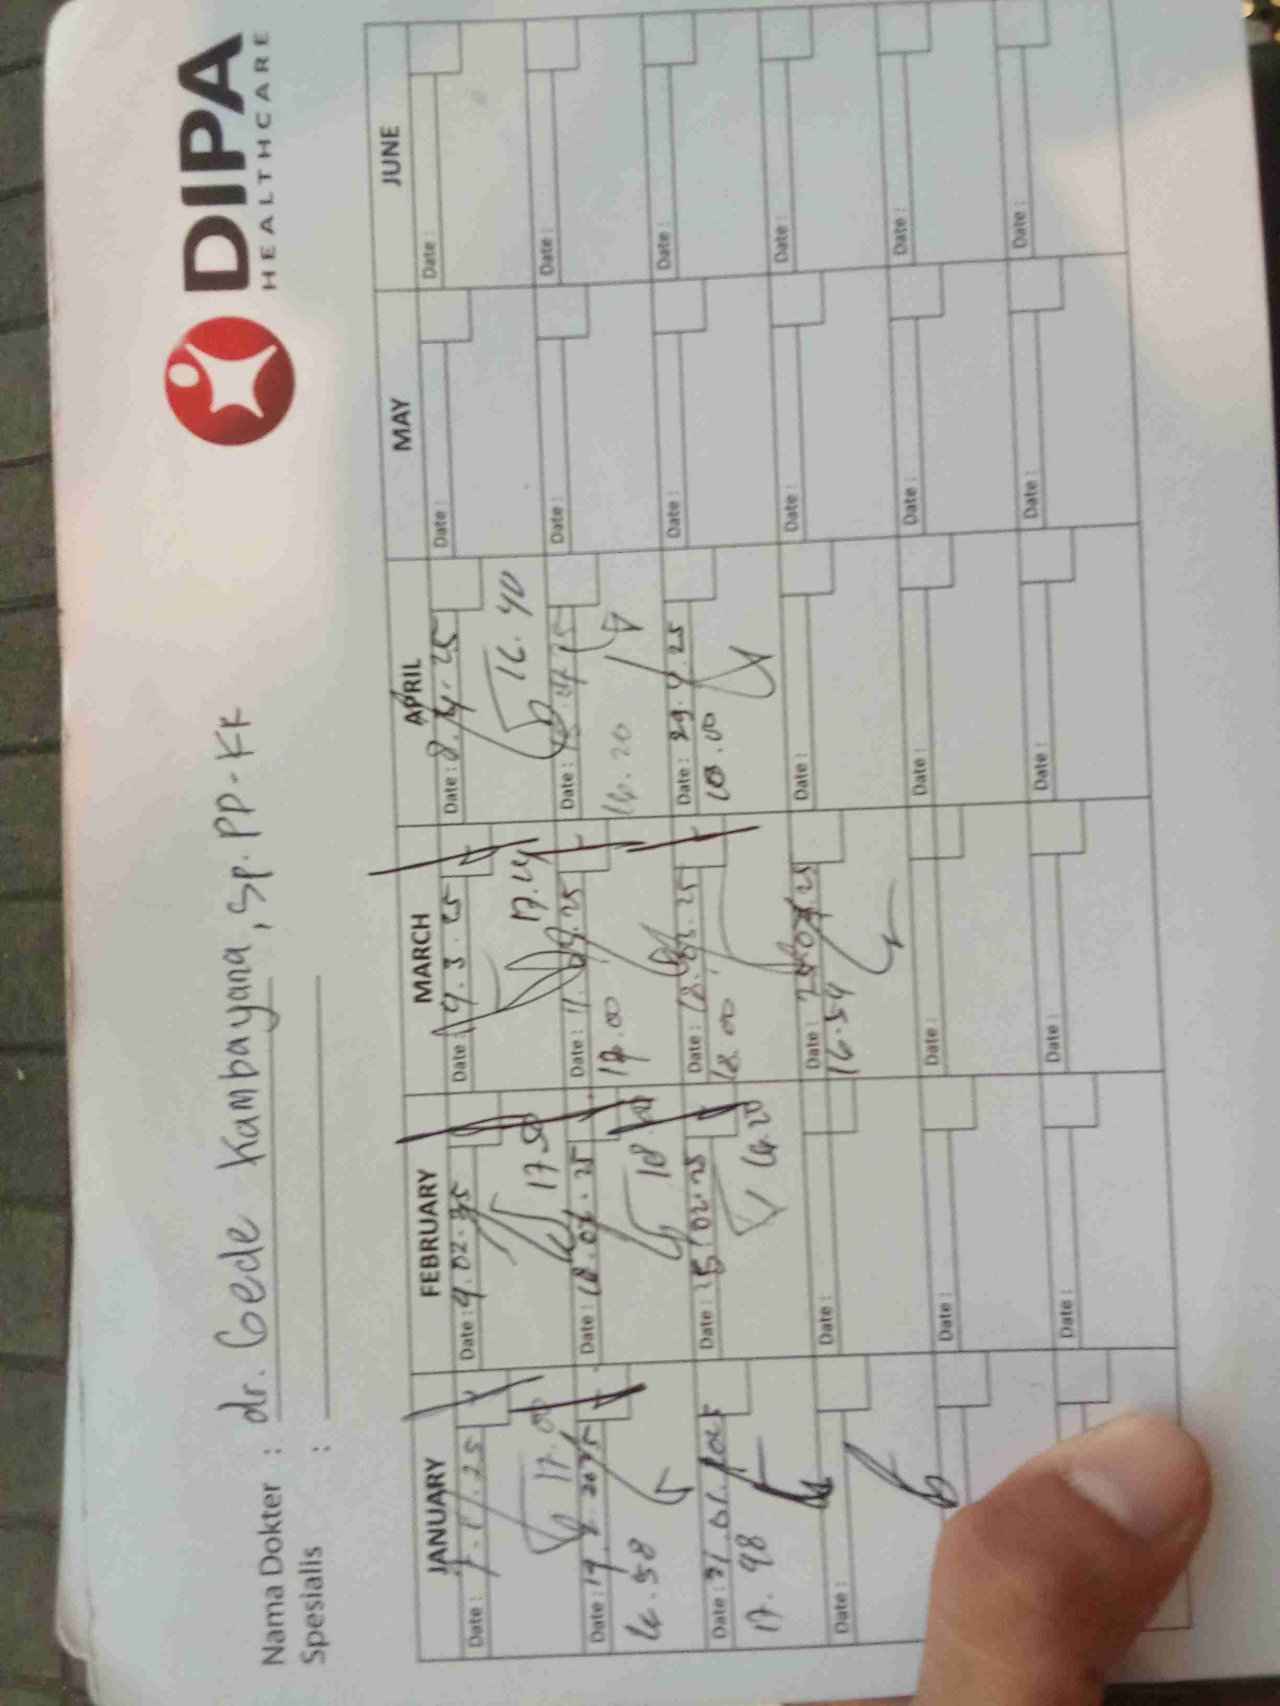 DIPA
HEALTHCARE
Nama Dokter : dr. Gede Kambayana, Sp. PP-KR
Spesialis :
JANUARY FEBRUARY MARCH APRIL MAY JUNE
Date : 7.1.25 Date : 9.02.25 Date : 9.3.25 Date : 8.4.25 Date : Date :
17.00 17.50 17.44 16.40
Date : Date : 18.02.25 Date : Date : Date : Date :
16.58 17.00 16.20
Date : 21.01.2025 Date : 25.02.25 Date : 18.03.25 Date : 29.4.25 Date : Date :
17.48 16.20 18.00 18.00
Date : Date : Date : Date : Date : Date :
16.54
Date : Date : Date : Date : Date :
Date : Date : Date : Date : Date :